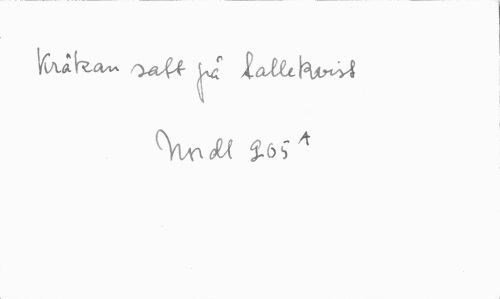 Kråkan satt på tallekvist
Nordl 205 A